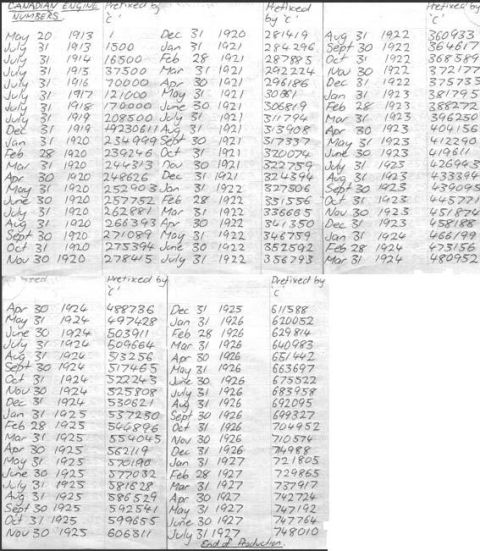 CANADIAN ENGINE NUMBERS. Prefixed by 'C'
May 20 1913
July 31 1913 1500
July 31 1914 16500
July 31 1915 37500
July 31 1916 70000
July 31 1917 121000
July 31 1918 170000
July 31 1919 208500
Dec 31 1919
Jan 31 1920 234999
Feb 28 1920 239246
Mar 31 1920 244313
Apr 30 1920 248626
May 31 1920 252903
June 30 1920 257752
July 31 1920 262881
Aug 31 1920 266393
Sept 30 1920 271089
Oct 31 1920 275394
Nov 30 1920 278415
Prefixed by 'C'
Dec 31 1920 281419
Jan 31 1921 284296
Feb 28 1921 287885
Mar 31 1921 292224
Apr 30 1921 296186
May 31 1921
June 30 1921 306819
July 31 1921 311794
Aug 31 1921 313908
Sept 30 1921 317337
Oct 31 1921 320074
Nov 30 1921 322759
Dec 31 1921 324394
Jan 31 1922 327506
Feb 28 1922 331556
Mar 31 1922 336665
Apr 30 1922 341350
May 31 1922 346759
June 30 1922 352592
July 31 1922 356793
Prefixed by 'C'
Aug 31 1922 360933
Sept 30 1922 364617
Oct 31 1922 368589
Nov 30 1922 372177
Dec 31 1922 375733
Jan 31 1923 381795
Feb 28 1923 388272
Mar 31 1923 396250
Apr 30 1923 404156
May 31 1923 412290
June 30 1923 419611
July 31 1923 426993
Aug 31 1923 433394
Sept 30 1923 439095
Oct 31 1923 445771
Nov 30 1923 451874
Dec 31 1923 458188
Jan 31 1924 466199
Feb 28 1924 473156
Mar 31 1924 480952
Prefixed by 'C'
Apr 30 1924 488736
May 31 1924 497428
June 30 1924 503911
July 31 1924 509664
Aug 31 1924 513256
Sept 30 1924 517465
Oct 31 1924 522243
Nov 30 1924 525808
Dec 31 1924 530621
Jan 31 1925 537230
Feb 28 1925 544896
Mar 31 1925 554045
Apr 30 1925 562119
May 31 1925 570190
June 30 1925 577032
July 31 1925 581628
Aug 31 1925 586529
Sept 30 1925 592541
Oct 31 1925 599655
Nov 30 1925 606311
Prefixed by 'C'
Dec 31 1925 611588
Jan 31 1926 620052
Feb 28 1926 629814
Mar 31 1926 640983
Apr 30 1926 651442
May 31 1926 663697
June 30 1926 675522
July 31 1926 683958
Aug 31 1926 692095
Sept 30 1926 699327
Oct 31 1926 704952
Nov 30 1926 710574
Dec 31 1926 714988
Jan 31 1927 721805
Feb 28 1927 729865
Mar 31 1927 737917
Apr 30 1927 742724
May 31 1927 747192
June 30 1927 747764
July 31 1927 748010
End of Production.